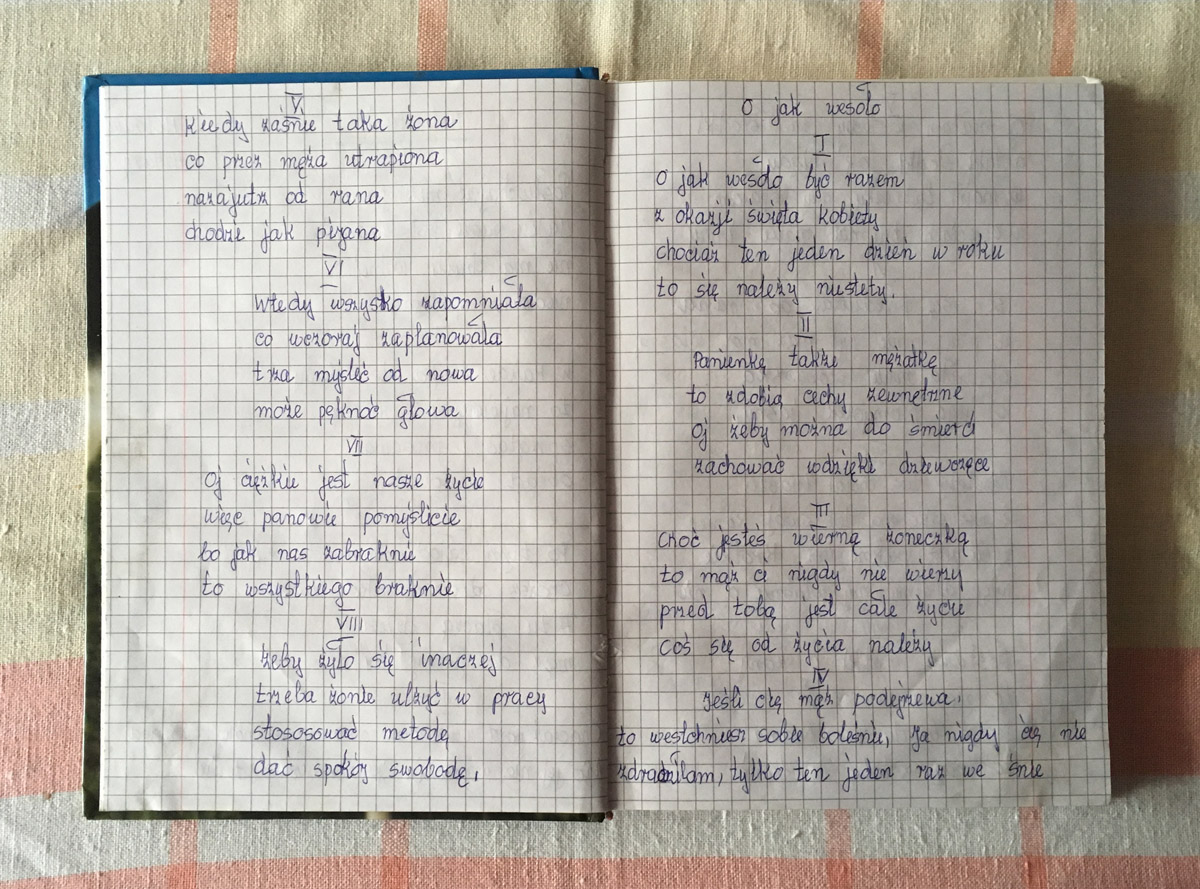 V
Kiedy zaśnie taka żona
co przez męża utrapiona
nazajutrz od rana
chodzi jak pijana
VI
Wtedy wszystko zapomniała
co wczoraj zaplanowała
trza myśleć od nowa
może pęknąć głowa
VII
Oj ciężkie jest nasze życie
więc panowie pomyślicie
bo jak nas zabraknie
to wszystkiego braknie
VIII
żeby żyło się inaczej
trzeba żonie ulżyć w pracy
stososować metodę
dać spokój swobodę,
O jak wesoło
I
O jak wesoło być razem
z okazji święta kobiety
chociaż ten jeden dzień w roku
to się należy niestety.
II
Panienkę także mężatkę
to zdobią cechy zewnętrzne
Oj żeby można do śmierci
zachować wdzięki dziewczęce
III
Choć jesteś wierną żoneczką
to mąż ci nigdy nie wierzy
przed tobą jest całe życie
coś się od życia należy
IV
Jeśli cię mąż podejrzewa,
to westchniesz sobie boleśnie, Ja nigdy cię nie
zdradziłam, tylko ten jeden raz we śnie